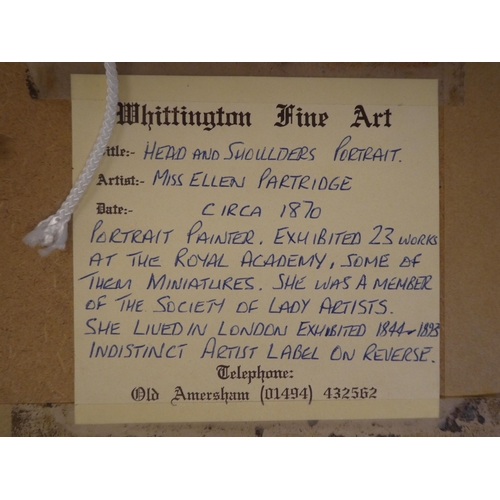 Whittington Fine Art
Title:- HEAD AND SHOULDERS PORTRAIT.
Artist:- MISS ELLEN PARTRIDGE
Date:- CIRCA 1870
PORTRAIT PAINTER. EXHIBITED 23 WORKS
AT THE ROYAL ACADEMY, SOME OF
THEM MINIATURES. SHE WAS A MEMBER
OF THE SOCIETY OF LADY ARTISTS.
SHE LIVED IN LONDON EXHIBITED 1844-1893
INDISTINCT ARTIST LABEL ON REVERSE.
Telephone:
Old Amersham (01494) 432562